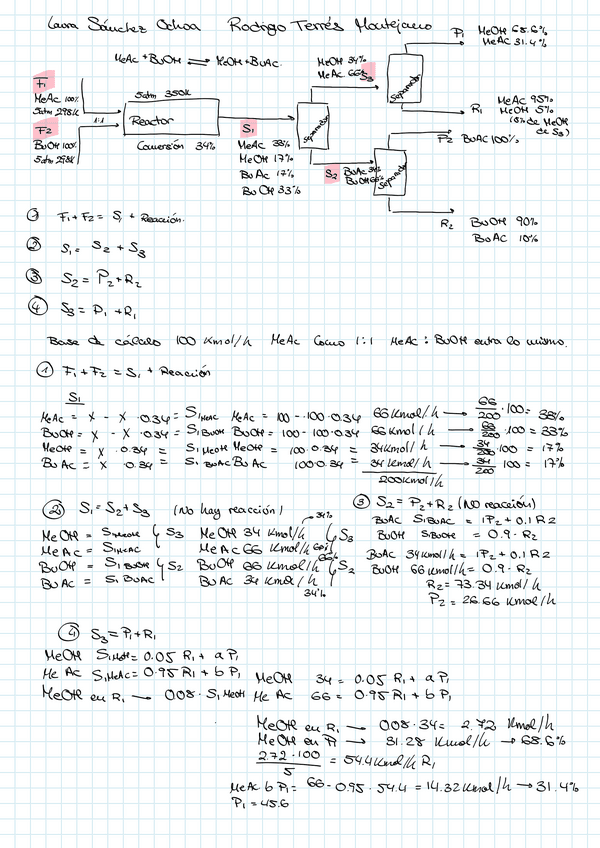 Laura Sánchez Ochoa Rodrigo Terrés Montejano
MeAc + BuOH ⇌ MeOH + BuAc.
F1
MeAc 100%
5atm 298K
F2
BuOH 100%
5atm 298K
1:1
5atm 350K
Reactor
Conversión 34%
S1
MeAc 33%
MeOH 17%
BuAc 17%
BuOH 33%
Separador
MeOH 34%
MeAc 66%
S3
S2
BuAc 34%
BuOH 66%
Separador
Separador
P1 MeOH 68.6%
MeAc 31.4%
R1 MeAc 95%
MeOH 5%
(8% de MeOH
de S3)
P2 BuAc 100%
R2 BuOH 90%
BuAc 10%
① F1 + F2 = S1 + Reacción.
② S1 = S2 + S3
③ S2 = P2 + R2
④ S3 = P1 + R1
Base de cálculo 100 Kmol/h MeAc Como 1:1 MeAc : BuOH entra lo mismo.
① F1 + F2 = S1 + Reacción
S1
MeAc = X - X · 0.34 = S1MeAc MeAc = 100 - 100 · 0.34 66 Kmol/h → 66/200 · 100 = 33%
BuOH = X - X · 0.34 = S1BuOH BuOH = 100 - 100 · 0.34 66 Kmol/h → 66/200 · 100 = 33%
MeOH = X · 0.34 = S1MeOH MeOH = 100 · 0.34 = 34 Kmol/h → 34/200 · 100 = 17%
BuAc = X · 0.34 = S1BuAc BuAc 100 · 0.34 = 34 Kmol/h → 34/200 · 100 = 17%
200 Kmol/h
② S1 = S2 + S3 (No hay reacción)
MeOH = S1MeOH } S3 MeOH 34 Kmol/h 34% } S3
MeAc = S1MeAc MeAc 66 Kmol/h 66%
BuOH = S1BuOH } S2 BuOH 66 Kmol/h 66% } S2
BuAc = S1BuAc BuAc 34 Kmol/h 34%
③ S2 = P2 + R2 (NO reacción)
BuAc S1BuAc = 1P2 + 0.1 R2
BuOH S1BuOH = 0.9 · R2
BuAc 34 Kmol/h = 1P2 + 0.1 R2
BuOH 66 Kmol/h = 0.9 · R2
R2 = 73.34 Kmol/h
P2 = 26.66 Kmol/h
④ S3 = P1 + R1
MeOH S1MeOH = 0.05 R1 + a P1
MeAc S1MeAc = 0.95 R1 + b P1
MeOH en R1 → 0.08 · S1MeOH
MeOH 34 = 0.05 R1 + a P1
MeAc 66 = 0.95 R1 + b P1
MeOH en R1 → 0.08 · 34 = 2.72 Kmol/h
MeOH en P1 → 31.28 Kmol/h → 68.6%
2.72 · 100 / 5 = 54.4 Kmol/h R1
MeAc b P1 = 66 - 0.95 · 54.4 = 14.32 Kmol/h → 31.4%
P1 = 45.6